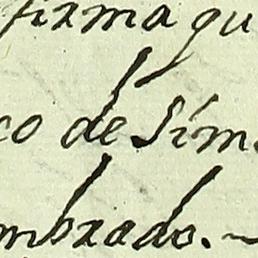 firma qu
co de Sim
mbrado.